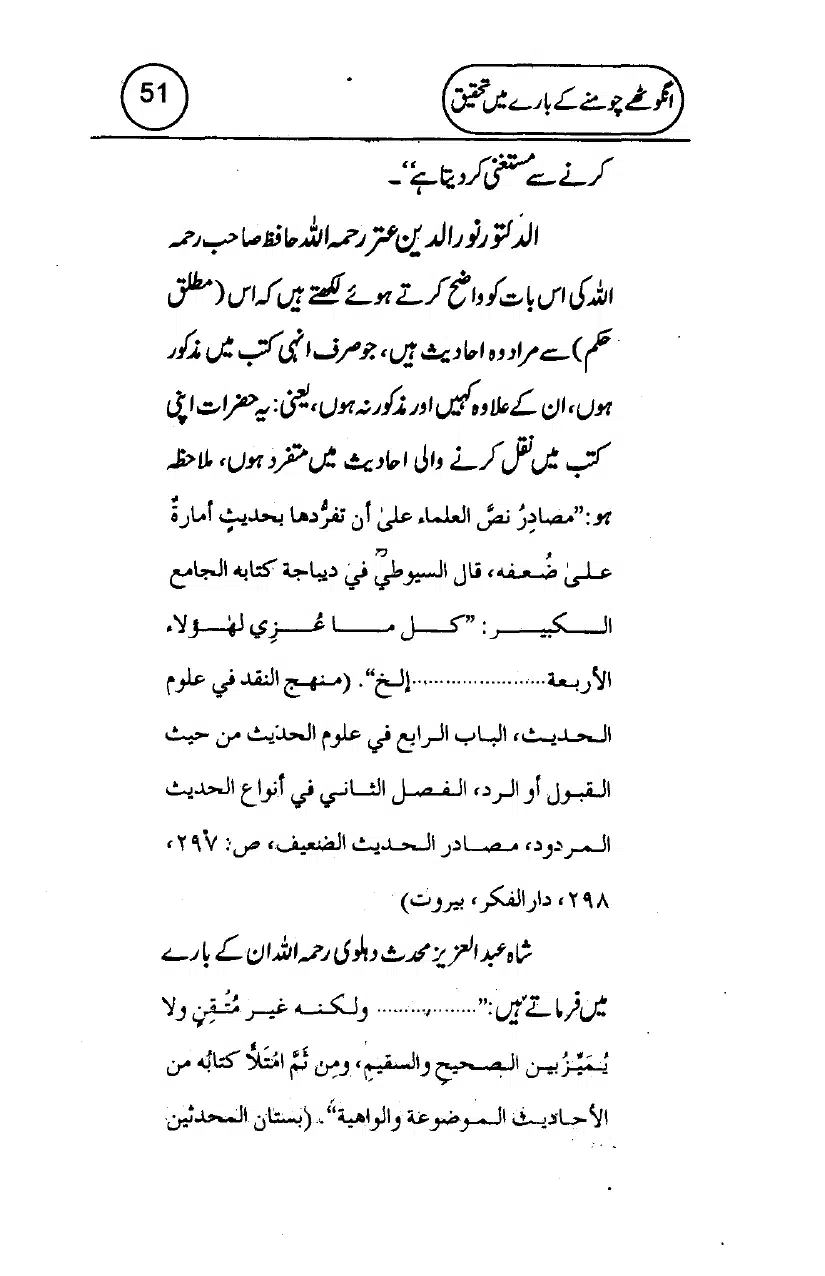 انگوٹھے چومنے کے بارے میں تحقیق
51
کرنے سے مستغنی کر دیتا ہے“۔
الدکتور نور الدین عتر رحمہ اللہ حافظ صاحب رحمہ
اللہ کی اس بات کو واضح کرتے ہوئے لکھتے ہیں کہ اس (مطلق
حکم) سے مراد وہ احادیث ہیں، جو صرف انہی کتب میں مذکور
ہوں، ان کے علاوہ کہیں اور مذکور نہ ہوں، یعنی: یہ حضرات اپنی
کتب میں نقل کرنے والی احادیث میں متفرد ہوں، ملاحظہ
ہو: ”مصادِرُ نصَّ العلماء علیٰ أن تفرُّدها بحدیثٍ أمارةٌ
علیٰ ضُعفه، قال السیوطيؒ في دیباجة کتابه الجامع
الکبیر: ”کل ما عُزِي لهؤلاء
الأربعة........................إلخ“. (منهج النقد في علوم
الحدیث، الباب الرابع في علوم الحدیث من حیث
القبول أو الرد، الفصل الثاني في أنواع الحدیث
المردود، مصادر الحدیث الضعیف، ص: ۲۹۷،
۲۹۸، دار الفکر، بیروت)
شاہ عبد العزیز محدث دہلوی رحمہ اللہ ان کے بارے
میں فرماتے ہیں: ”................ ولکنه غیر مُتُقِنٍ ولا
یُمَیِّزُ بین الصحیحِ والسقیمِ، ومِن ثَمَّ امْتَلأَ کتابُه من
الأحادیث الموضوعة والواهیة“. (بستان المحدثین